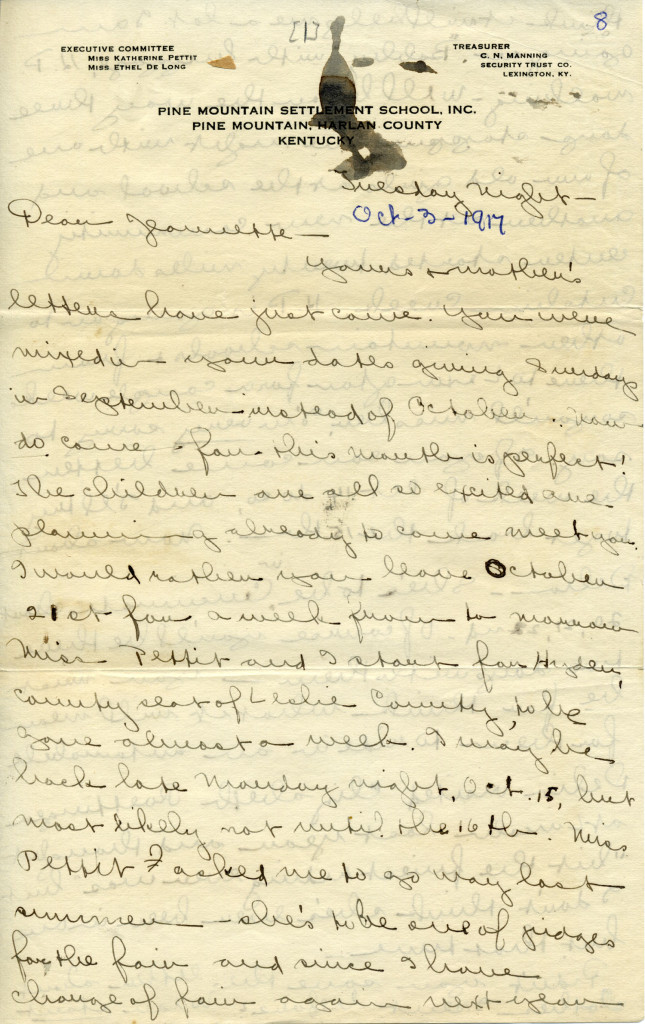 [1]
8
EXECUTIVE COMMITTEE
MISS KATHERINE PETTIT
MISS ETHEL DE LONG
TREASURER
C. N. MANNING
SECURITY TRUST CO.
LEXINGTON, KY.
PINE MOUNTAIN SETTLEMENT SCHOOL, INC.
PINE MOUNTAIN, HARLAN COUNTY
KENTUCKY
Tuesday Night —
Oct-3-1917
Dear Jeannette —
Yours & mother's
letters have just come. You were
mixed in your dates giving Sunday
in September instead of October. Now
do come — for this month is perfect!
The children are all so excited are
planning already to come meet you.
I would rather you leave October
21st for a week from to morrow
Miss Pettit and I start for Hyden,
county seat of Leslie County, to be
gone almost a week. I may be
back late Monday night, Oct. 15, but
most likely not until the 16th. Miss
Pettit asked me to go way last
summer — she's to be one of judges
for the fair and since I have
charge of fair again next year